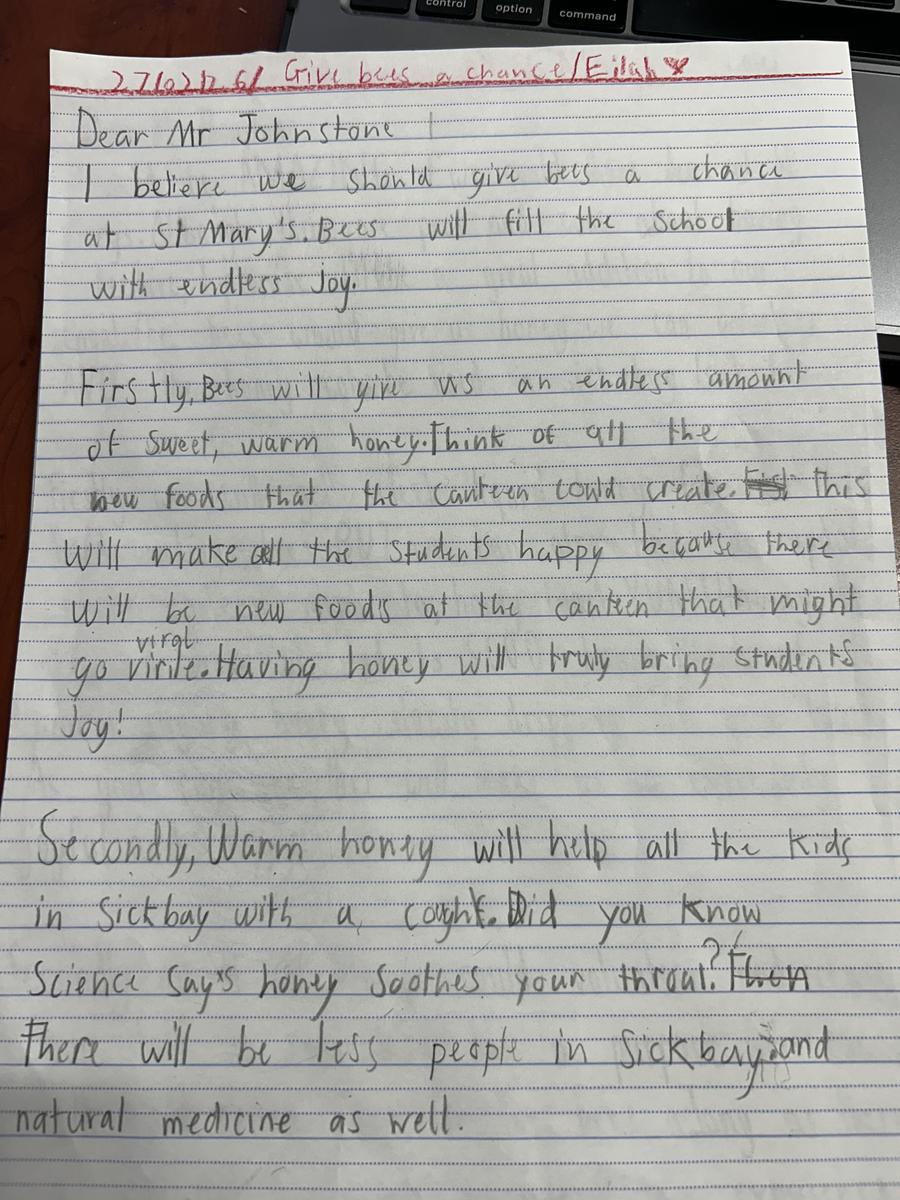 control option command
27/02/26/ Give bees a chance/Eilah
Dear Mr Johnstone
I believe we should give bees a chance
at St Mary's. Bees will fill the school
with endless Joy.
Firstly, Bees will give us an endless amount
of sweet, warm honey. Think of all the
new foods that the canteen could create. This
will make all the students happy because there
will be new foods at the canteen that might
virql
go virile. Having honey will truly bring students
Joy!
Secondly, Warm honey will help all the kids
in Sickbay with a cought. Did you know
Science say's honey Soothes your throut? Then
There will be less people in Sickbay and
natural medicine as well.